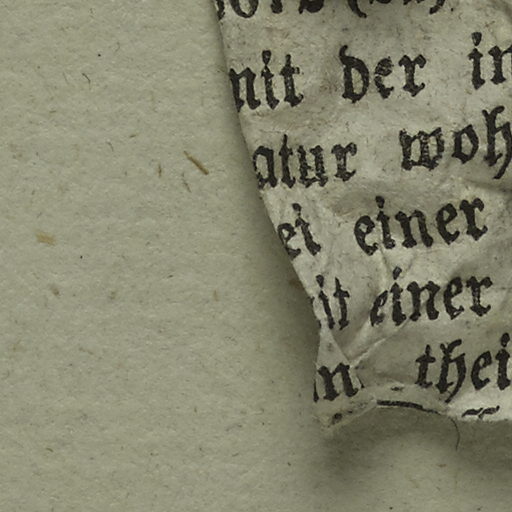 mit der in
atur woh
ei einer
it einer
thei